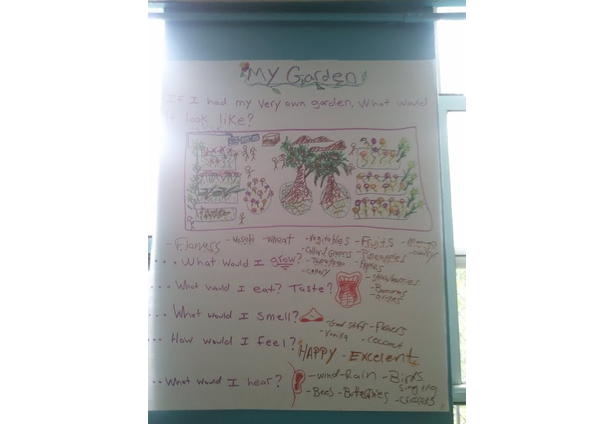 My Garden
If I had my very own garden, what would
it look like?
- Flowers - wheat - Vegetables - Fruits - Mango
- Collard Greens - Pineapples
... What would I grow?
- Apples
- Strawberries
... What would I eat? Taste?
- Bananas
... What would I smell? - Flowers
- Vanilla - coconut
... How would I feel?
HAPPY - Excelent
- wind - Rain - Birds
singing
... What would I hear?
- Bees - Butterflies - crickets